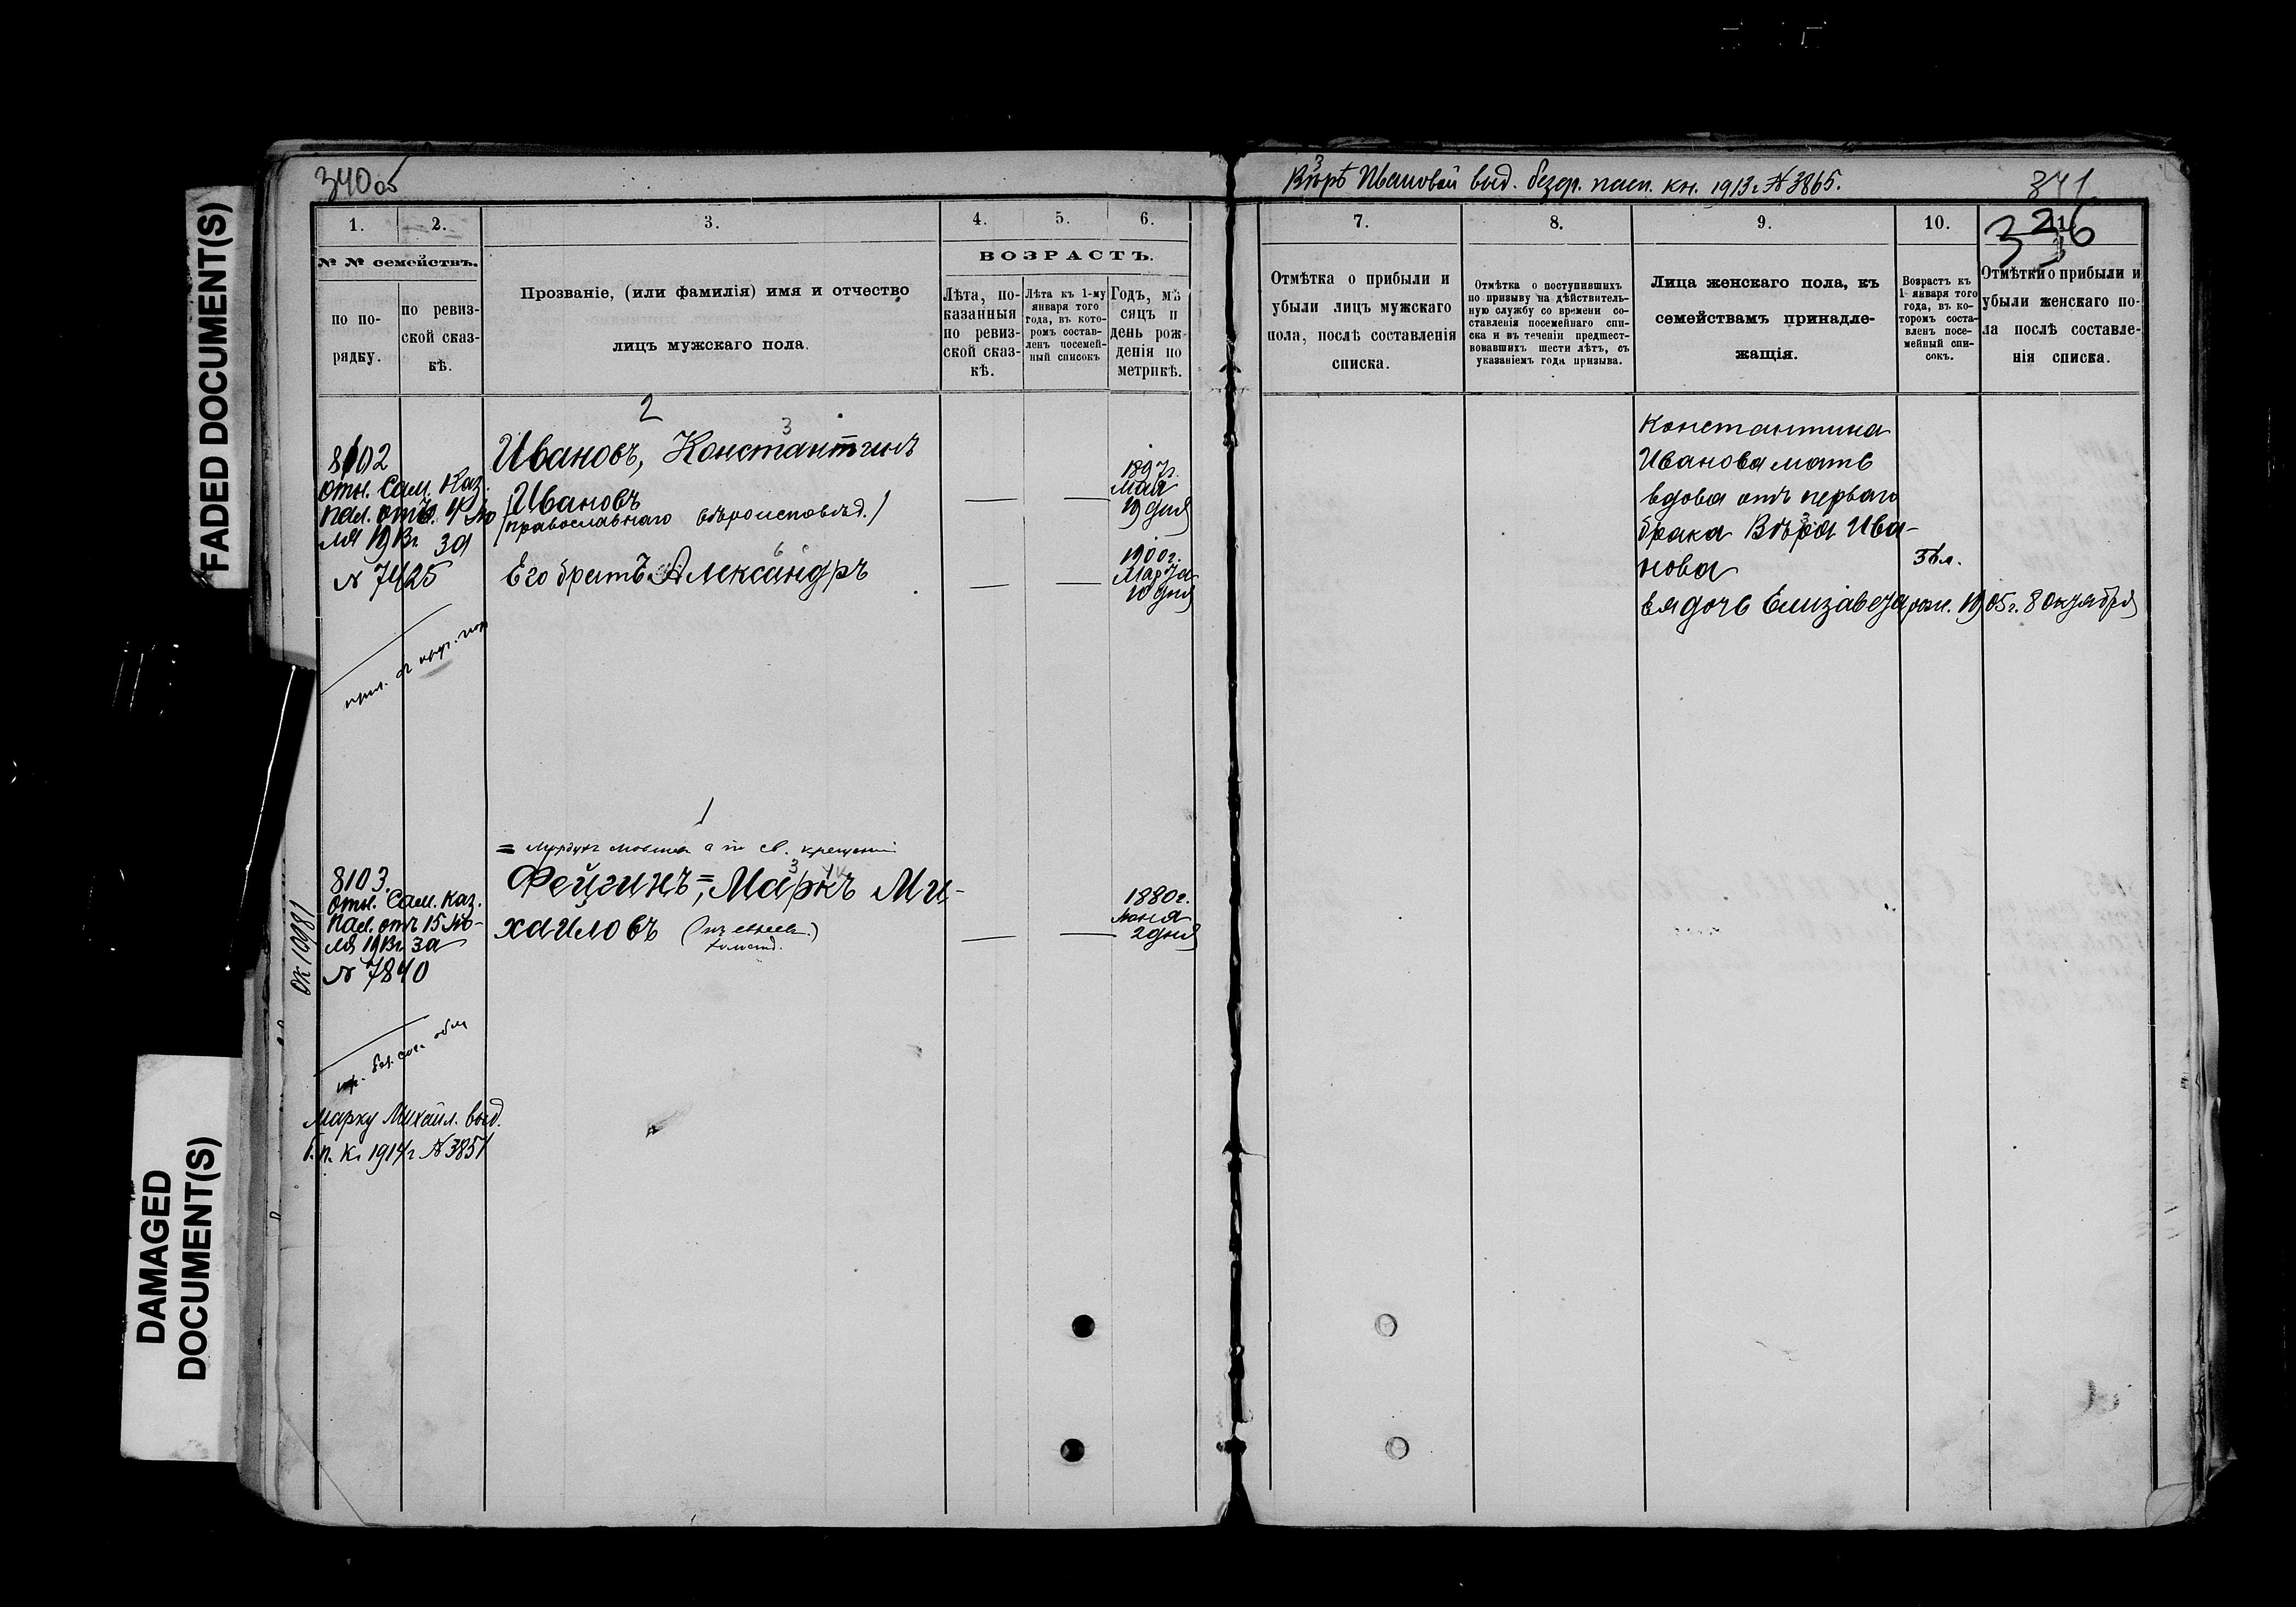 FADED DOCUMENT(S)
DAMAGED
DOCUMENT(S)
340об
1.
2.
3.
4.
5.
6.
№ № семействъ.
по по-
рядку.
по ревиз-
ской сказ-
кѣ.
Прозваніе, (или фамилія) имя и отчество
лицъ мужскаго пола.
ВОЗРАСТЪ.
Лѣта, по-
казанныя
по ревиз-
ской сказ-
кѣ.
Лѣта къ 1-му
января того
года, въ кото-
ромъ состав-
ленъ посемей-
ный списокъ
Годъ, мѣ
сяцъ и
день рож-
денія по
метрикѣ.
2
3
8102
отн. Сам. Каз.
Пал. отъ 4 Ію
ля 1913г за
№ 7425
Ивановъ, Константинъ
Ивановъ
/православнаго вѣроисповѣд./
1897г.
Мая
19 дня
6
Его братъ Александръ
1900г.
Марта
10 дня
1
= а по св. крещенію
3
8103.
отн. Сам. Каз.
Пал. отъ 15 Ію-
ля 1913г за
№ 7840
Фейгинъ=, Маркъ Ми-
хаиловъ (изъ евреев.)
1880г.
Іюня
2 дня
ок 10981
Марку Михайл. выд.
б. п. к. 1914г № 3851
Вѣрѣ Ивановой выд. безср. пасп. кн. 1913г № 3865.
341
336
7.
8.
9.
10.
11
Отмѣтка о прибыли и
убыли лицъ мужскаго
пола, послѣ составленія
списка.
Отмѣтка о поступившихъ
по призыву на дѣйствитель-
ную службу со времени со-
ставленія посемейнаго спи-
ска и въ теченіи предшест-
вовавшихъ шести лѣтъ, съ
указаніемъ года призыва.
Лица женскаго пола, къ
семействамъ принадле-
жащія.
Возрастъ къ
1 января того
года, въ ко-
торомъ соста-
вленъ посе-
мейный спи-
сокъ.
Отмѣтки о прибыли и
убыли женскаго по-
ла послѣ составле-
нія списка.
Константина
Иванова мать
вдова отъ перваго
брака Вѣра Ива-
нова
Ея дочь Елизавета рож. 1905г. 8 октября